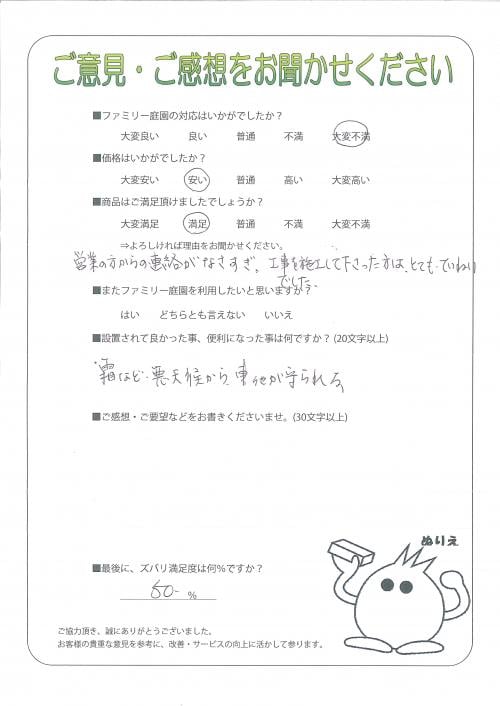 ご意見・ご感想をお聞かせください
■ファミリー庭園の対応はいかがでしたか？
大変良い 良い 普通 不満 大変不満
■価格はいかがでしたか？
大変安い 安い 普通 高い 大変高い
■商品はご満足頂けましたでしょうか？
大変満足 満足 普通 不満 大変不満
⇒よろしければ理由をお聞かせください。
営業の方からの連絡がなさすぎ。工事を施工して下さった方は、とても、ていねい
でした。
■またファミリー庭園を利用したいと思いますか？
はい どちらとも言えない いいえ
■設置されて良かった事、便利になった事は何ですか？(20文字以上)
霜など、悪天候から、車が守られる
■ご感想・ご要望などをお書きくださいませ。(30文字以上)
ぬりえ
■最後に、ズバリ満足度は何％ですか？
50- %
ご協力頂き、誠にありがとうございました。
お客様の貴重な意見を参考に、改善・サービスの向上に活かして参ります。